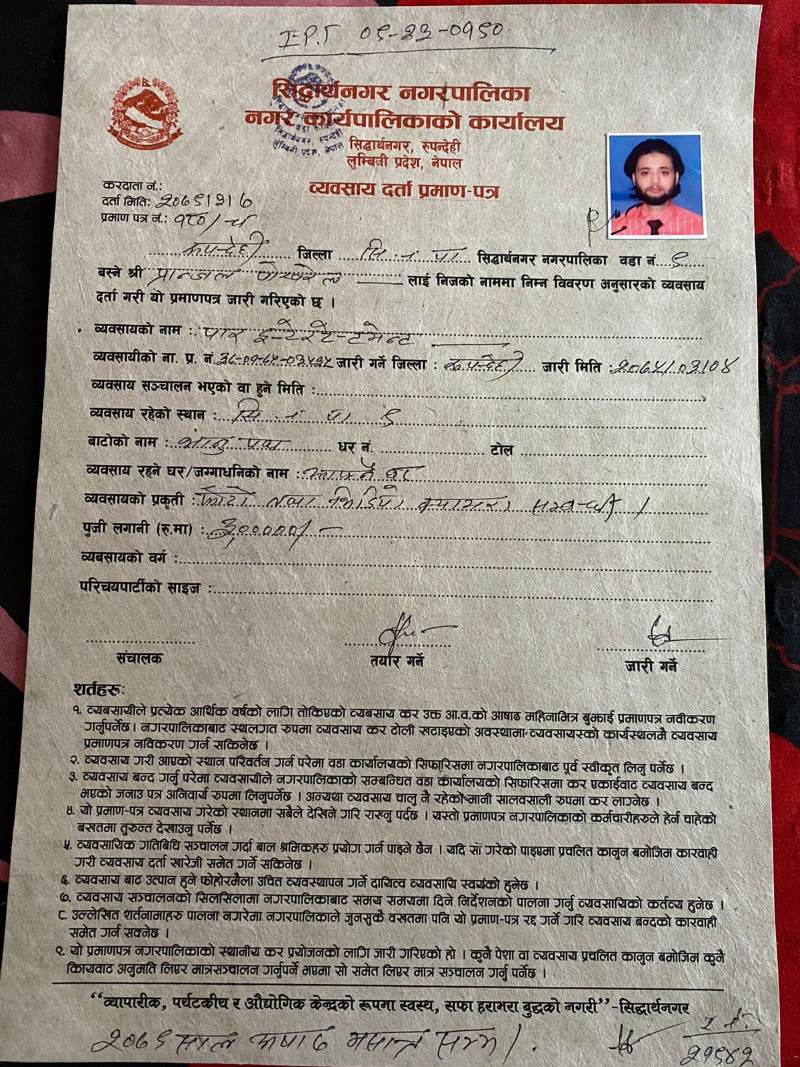 सिद्धार्थनगर नगरपालिका
नगर कार्यपालिकाको कार्यालय
सिद्धार्थनगर, रुपन्देही
लुम्बिनी प्रदेश, नेपाल
व्यवसाय दर्ता प्रमाण-पत्र
करदाता नं.:
दर्ता मिति:
प्रमाण पत्र नं.:
रुपन्देही जिल्ला सि. न. पा सिद्धार्थनगर नगरपालिका वडा नं. ९
बस्ने श्री लाई निजको नाममा निम्न विवरण अनुसारको व्यवसाय
दर्ता गरी यो प्रमाणपत्र जारी गरिएको छ ।
व्यवसायको नाम :
व्यवसायीको ना. प्र. नं. जारी गर्ने जिल्ला : रुपन्देही जारी मिति :
व्यवसाय सञ्चालन भएको वा हुने मिति :
व्यवसाय रहेको स्थान : सि. न. पा ९
बाटोको नाम : भानु पथ घर नं. टोल
व्यवसाय रहने घर/जग्गाधनिको नाम :
व्यवसायको प्रकृती : फोटो तथा भिडियो सम्बन्धी ।
पुजी लगानी (रु.मा) :
व्यबसायको वर्ग :
परिचयपार्टीको साइज :
संचालक तयार गर्ने जारी गर्ने
शर्तहरु:
१. व्यबसायीले प्रत्येक आर्थिक वर्षको लागि तोकिएको व्यबसाय कर उक्त आ.व.को आषाढ महिनाभित्र बुझाई प्रमाणपत्र नवीकरण
गर्नुपर्नेछ । नगरपालिकाबाट स्थलगत रुपमा व्यवसाय कर टोली खटाइएको अवस्थामा व्यवसायस्को कार्यस्थलमै व्यवसाय
प्रमाणपत्र नविकरण गर्न सकिनेछ ।
२. व्यवसाय गरी आएको स्थान परिवर्तन गर्न परेमा वडा कार्यालयको सिफारिसमा नगरपालिकाबाट पूर्व स्वीकृत लिनु पर्नेछ ।
३. व्यवसाय बन्द गर्नु परेमा व्यवसायीले नगरपालिकाको सम्बन्धित वडा कार्यालयको सिफारिसमा कर एकाईबाट व्यवसाय बन्द
भएको जनाउ पत्र अनिवार्य रुपमा लिनुपर्नेछ । अन्यथा व्यवसाय चालु नै रहेको मानी सालवसाली रुपमा कर लाग्नेछ ।
४. यो प्रमाण-पत्र व्यवसाय गरेको स्थानमा सबैले देखिने गरि राख्नु पर्दछ । यस्तो प्रमाणपत्र नगरपालिकाको कर्मचारीहरुले हेर्न चाहेको
बखतमा तुरुन्त देखाउनु पर्नेछ ।
५. व्यवसायिक गतिबिधि सञ्चालन गर्दा बाल श्रमिकहरु प्रयोग गर्न पाइने छैन । यदि सो गरेको पाइएमा प्रचलित कानुन बमोजिम कारवाही
गरी व्यवसाय दर्ता खारेजी समेत गर्न सकिनेछ ।
६. व्यवसाय बाट उत्पान हुने फोहोरमैला उचित व्यवस्थापन गर्ने दायित्व व्यवसायि स्वयंको हुनेछ ।
७. व्यवसाय सञ्चालनको सिलसिलामा नगरपालिकाबाट समय समयमा दिने निर्देशनको पालना गर्नु व्यवसायिको कर्तव्य हुनेछ ।
८. उल्लेखित शर्तनामाहरु पालना नगरेमा नगरपालिकाले जुनसुकै वखतमा पनि यो प्रमाण-पत्र रद्द गर्ने गरि व्यवसाय बन्दको कारवाही
समेत गर्न सक्नेछ ।
९. यो प्रमाणपत्र नगरपालिकाको स्थानीय कर प्रयोजनको लागि जारी गरिएको हो । कुनै पेशा वा व्यवसाय प्रचलित कानुन बमोजिम कुनै
निकायवाट अनुमति लिएर मात्रसञ्चालन गर्नुपर्ने भएमा सो समेत लिएर मात्र सञ्चालन गर्नु पर्नेछ ।
"व्यापारीक, पर्यटकीय र औद्योगिक केन्द्रको रुपमा स्वस्थ, सफा हराभरा बुद्धको नगरी"-सिद्धार्थनगर
२०७९ साल अषाढ मसान्त सम्म ।